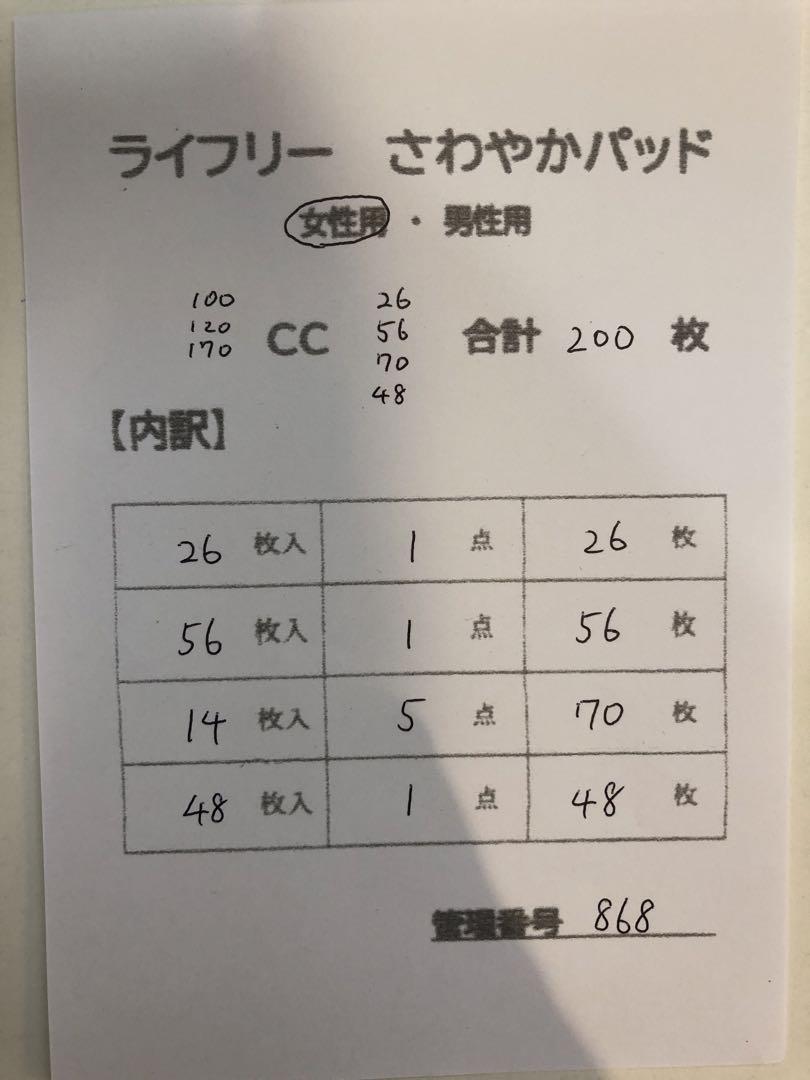 ライフリー　さわやかパッド
女性用・男性用
100
120
170
CC
26
56
70
48
合計 200 枚
【内訳】
26 枚入 1 点 26 枚
56 枚入 1 点 56 枚
14 枚入 5 点 70 枚
48 枚入 1 点 48 枚
管理番号 868